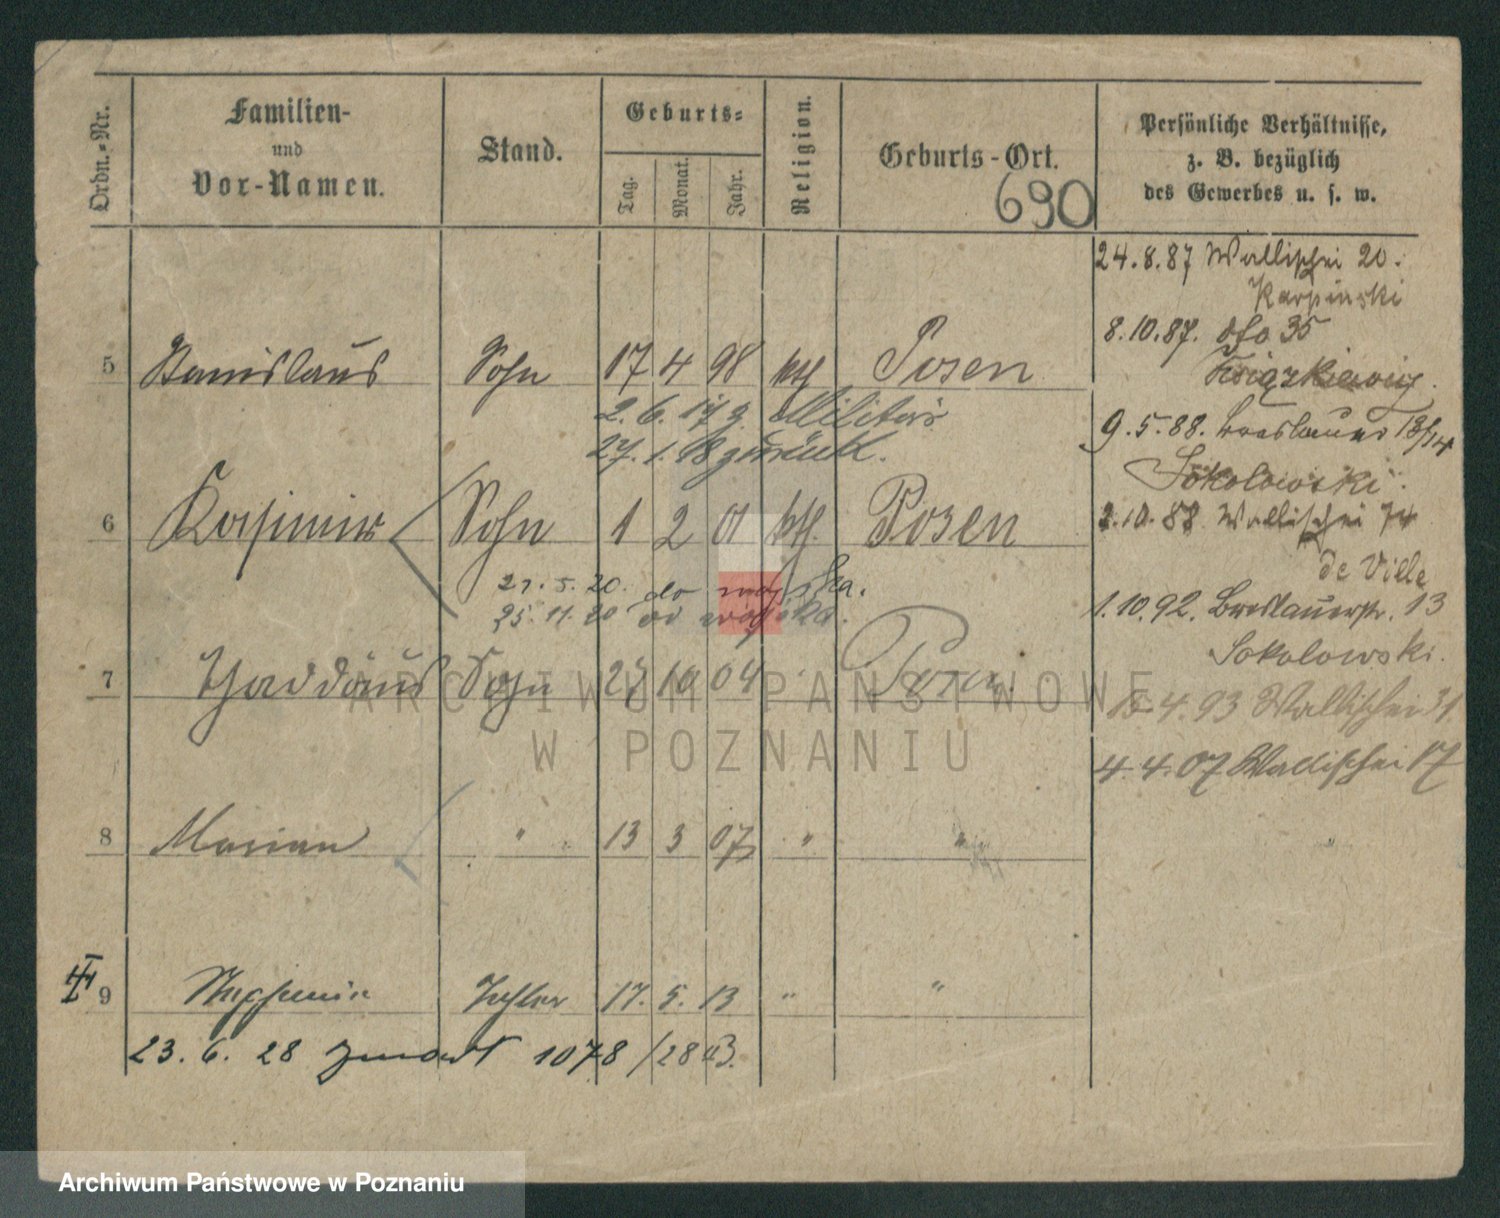 Ordn.-Nr.
Familien- und Vor-Namen.
Stand.
Geburts-
Tag.
Monat.
Jahr.
Religion.
Geburts-Ort.
690
Persönliche Verhältnisse,
z. B. bezüglich
des Gewerbes u. s. w.
5 Stanislaus Sohn 17 4 98 kth Posen
2. 6. 17 z. Militär
27. 1. 18 zurück.
6 Kasimir Sohn 1 2 01 kth. Posen
21. 5. 20. do wojska.
25. 11. 20 od wojska.
7 Thaddäus Sohn 27 10 04 Posen
8 Marian " 13 3 07 " "
9 Tochter 17. 5. 13 " "
23. 6. 28 zmarł 1078/28
24.8.87 Wallischei 20.
Karpinski
8.10.87. dto 35
Książkiewicz.
9.5.88. Breslauer 13/14
Sokolowski.
2.10.88 Wallischei 74
de Ville
1.10.92. Breslauerstr. 13
Sokolowski.
4.93 Wallischei 31
4.4.07 Wallischei 17
ARCHIWUM PAŃSTWOWE
W POZNANIU
Archiwum Państwowe w Poznaniu